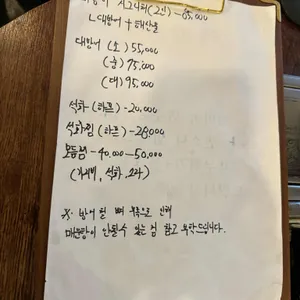 시그니처(2인) - 65,000
ㄴ대방어 + 해산물
대방어 (소) 55,000
(중) 75,000
(대) 95,000
석화 (하프) - 20,000
석화찜 (하프) - 28,000
모듬찜 - 40,000 ~ 50,000
(가리비, 석화, 소라)
※ 방어 철 뼈 부족으로 인해
매운탕이 안될수 있는 점 참고 부탁드립니다.